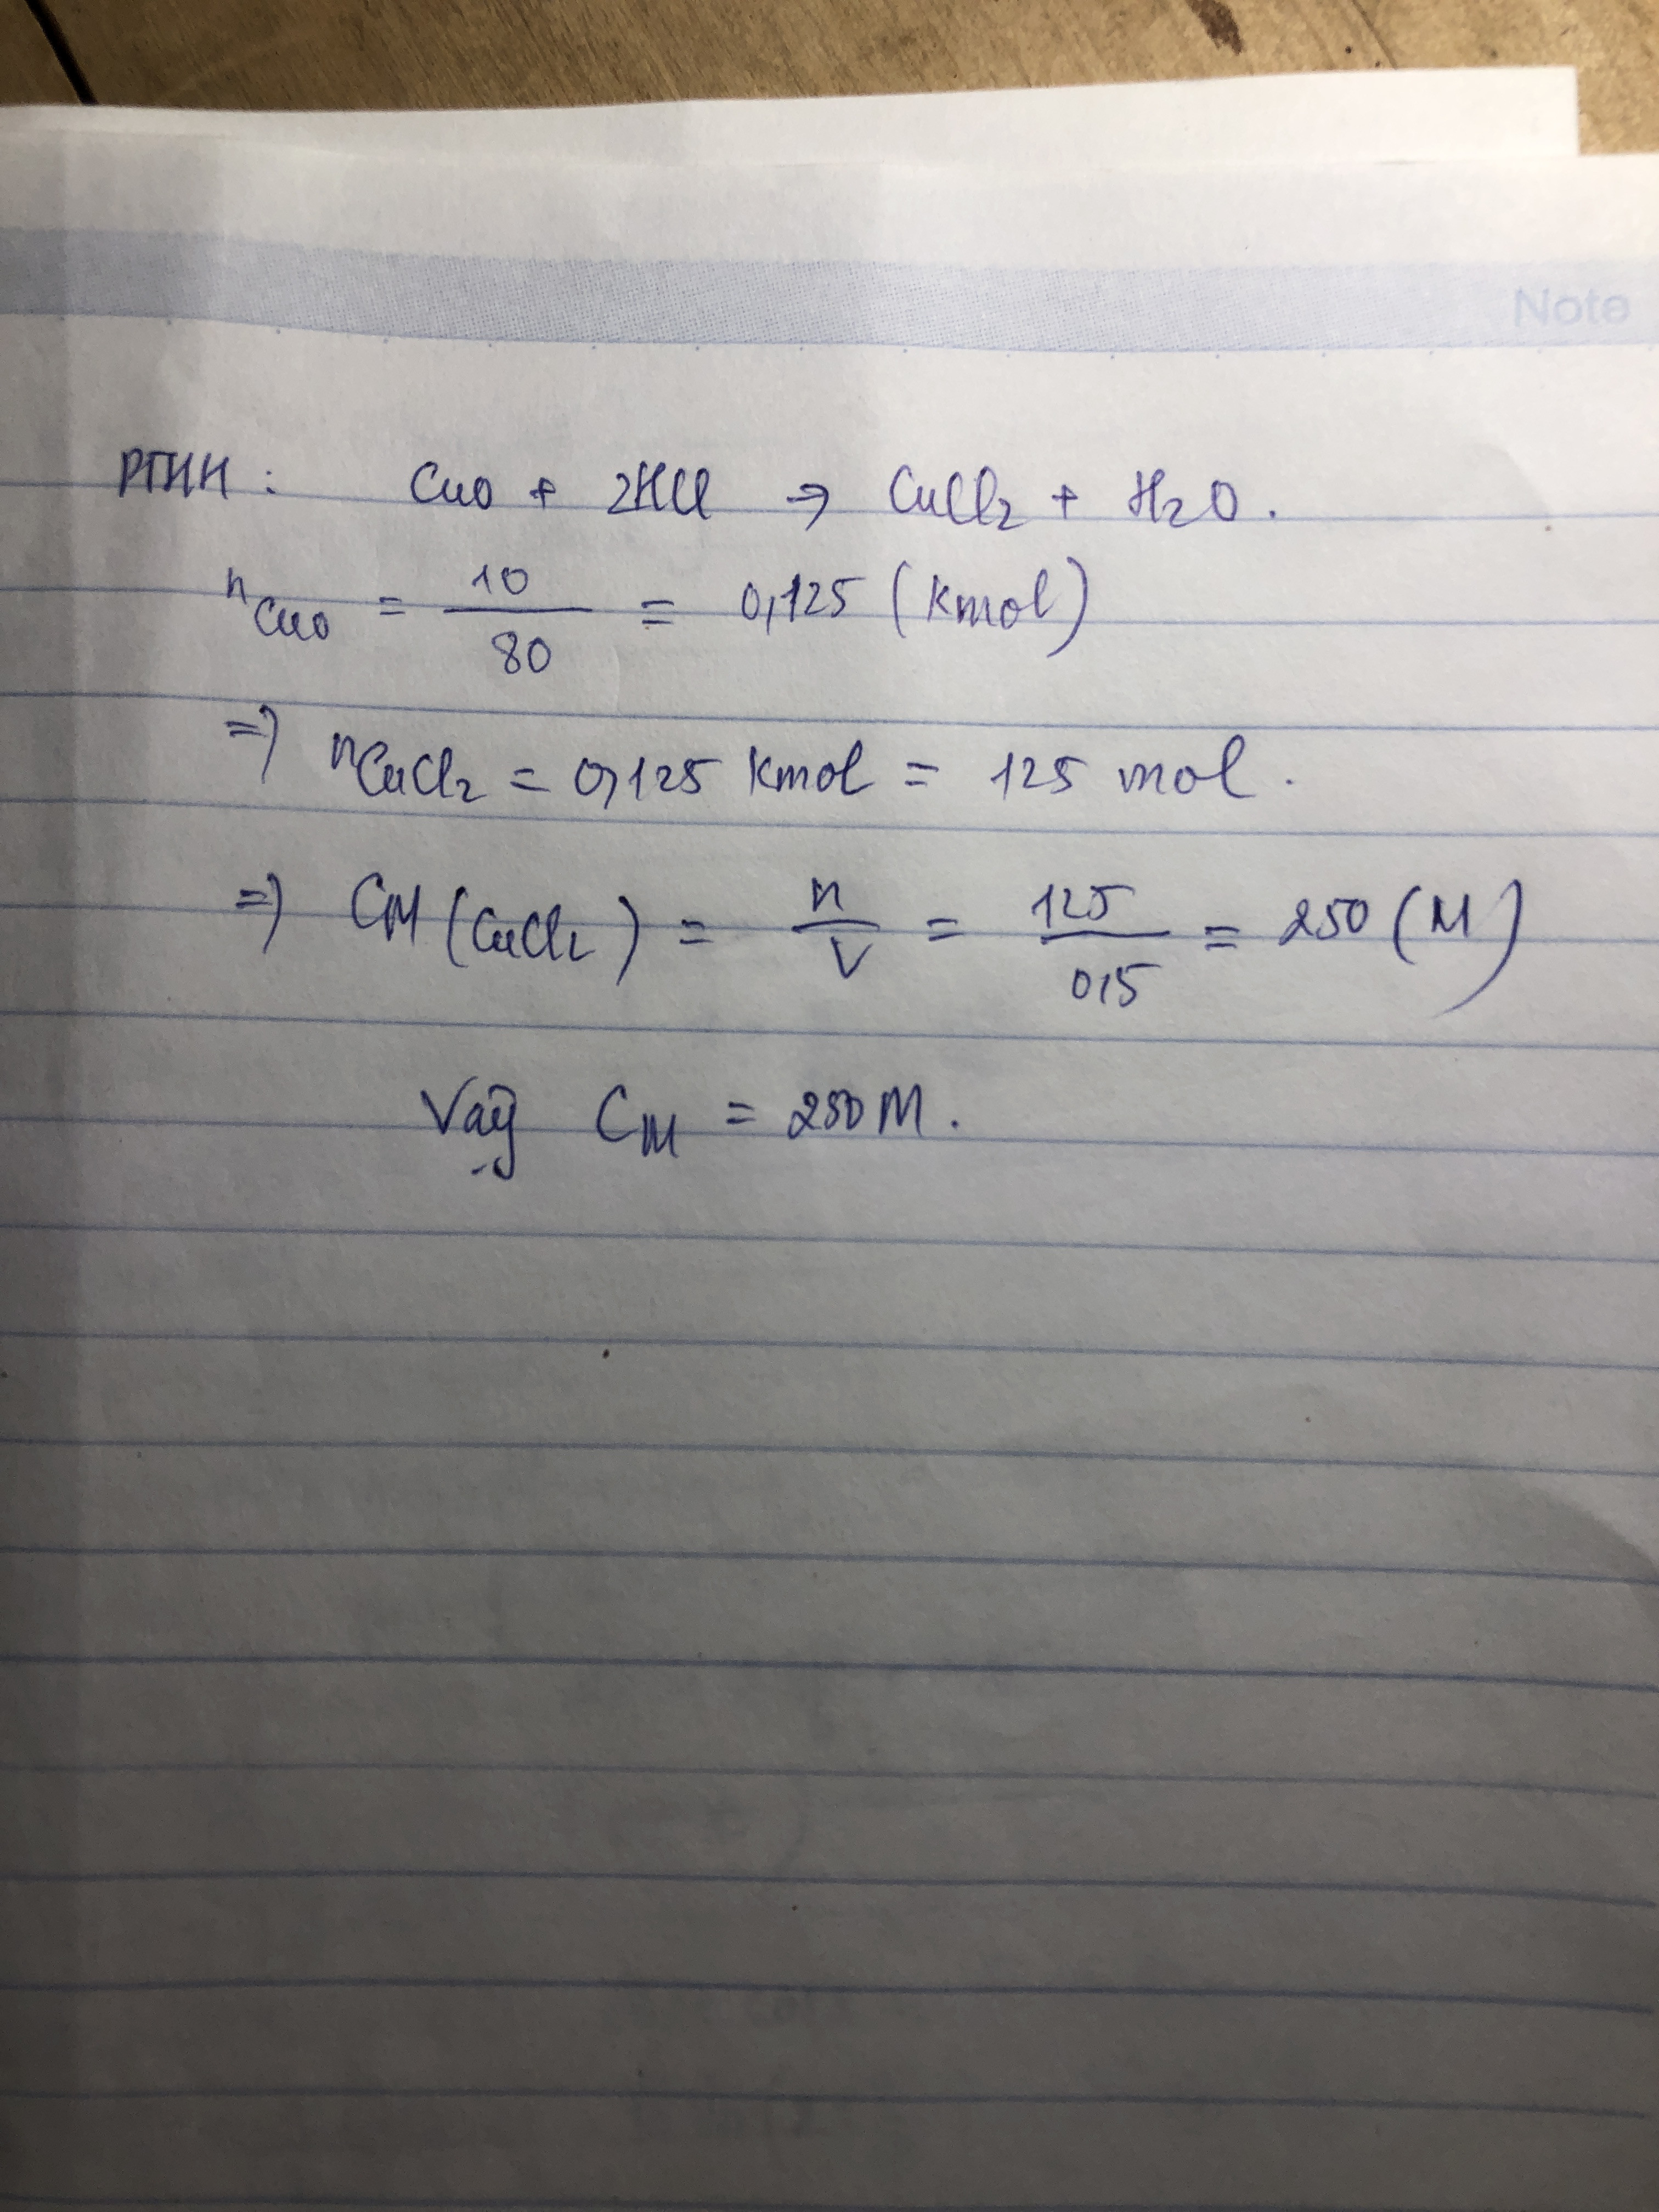 Note
PTHH : CuO + 2HCl → CuCl₂ + H₂O.
nCuO = 10/80 = 0,125 (kmol)
=> nCuCl₂ = 0,125 kmol = 125 mol.
=> CM (CuCl₂) = n/V = 125/0,5 = 250 (M)
Vậy CM = 250M.